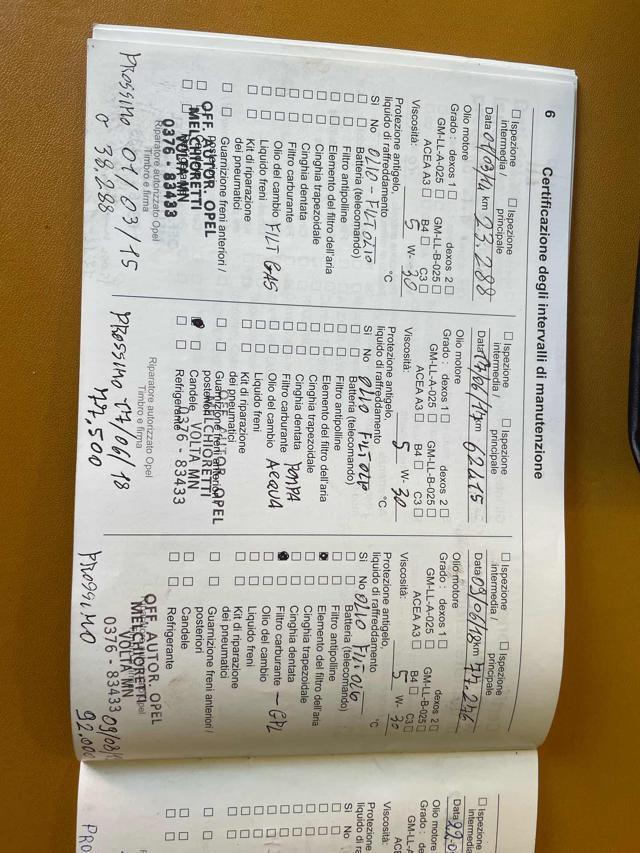 6
Certificazione degli intervalli di manutenzione
☐ Ispezione intermedia / ☐ Ispezione principale
Data 01/03/14 km 23.288
Olio motore
Grado: dexos 1 ☐ dexos 2 ☐
GM-LL-A-025 ☐ GM-LL-B-025 ☐
ACEA A3 ☐ B4 ☐ C3 ☐
Viscosità: 5 W- 30
Protezione antigelo,
liquido di raffreddamento °C
Sì No OLIO - FILT OLIO
☐ ☐ Batteria (telecomando)
☐ ☐ Filtro antipolline
☐ ☐ Elemento del filtro dell'aria
☐ ☐ Cinghia trapezoidale
☐ ☐ Cinghia dentata
☐ ☐ Filtro carburante
☐ ☐ Olio del cambio FILT GAS
☐ ☐ Liquido freni
☐ ☐ Kit di riparazione
dei pneumatici
☐ ☐ Guarnizione freni anteriori /
OFF. AUTOR. OPEL
MELCHIORETTI
VOLTA MN
0376 - 83433
Riparatore autorizzato Opel
Timbro e firma
PROSSIMO 01/03/15
o 38.288
☐ Ispezione intermedia / ☐ Ispezione principale
Data km 62415
Olio motore
Grado: dexos 1 ☐ dexos 2 ☐
GM-LL-A-025 ☐ GM-LL-B-025 ☐
ACEA A3 ☐ B4 ☐ C3 ☐
Viscosità: 5 W- 30
Protezione antigelo,
liquido di raffreddamento °C
Sì No OLIO FILT OLIO
☐ ☐ Batteria (telecomando)
☐ ☐ Filtro antipolline
☐ ☐ Elemento del filtro dell'aria
☐ ☐ Cinghia trapezoidale
☐ ☐ Cinghia dentata POMPA
☐ ☐ Filtro carburante
☐ ☐ Olio del cambio ACQUA
☐ ☐ Liquido freni
☐ ☐ Kit di riparazione
dei pneumatici
☐ ☐ Guarnizione freni anteriori /
posteriori
Candele
☐ ☐ Refrigerante
OFF. AUTOR. OPEL
MELCHIORETTI
VOLTA MN
0376 - 83433
Riparatore autorizzato Opel
Timbro e firma
PROSSIMO 17/06/18
77.500
☐ Ispezione intermedia / ☐ Ispezione principale
Data 09/06/18 km 77.276
Olio motore
Grado: dexos 1 ☐ dexos 2 ☐
GM-LL-A-025 ☐ GM-LL-B-025 ☐
ACEA A3 ☐ B4 ☐ C3 ☐
Viscosità: 5 W- 30
Protezione antigelo,
liquido di raffreddamento °C
Sì No OLIO FILT OLIO
☐ ☐ Batteria (telecomando)
☐ ☐ Filtro antipolline
Elemento del filtro dell'aria
☐ ☐ Cinghia trapezoidale
☐ ☐ Cinghia dentata
Filtro carburante - GPL
☐ ☐ Olio del cambio
☐ ☐ Liquido freni
☐ ☐ Kit di riparazione
dei pneumatici
☐ ☐ Guarnizione freni anteriori /
posteriori
☐ ☐ Candele
☐ ☐ Refrigerante
OFF. AUTOR. OPEL
MELCHIORETTI
VOLTA MN
0376 - 83433
PROSSIMO
92.000
☐ Ispezione
intermedia
Data
Olio motore
Grado:
GM-LL-A
Viscosità:
Protezione
liquido di
Sì No